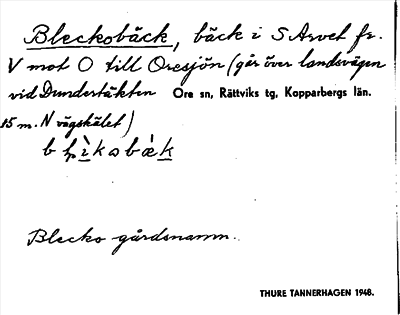 Blecksbäck, bäck i S Arvet fr.
V mot O till Oresjön (går över landsvägen
vid Dundertäkten Ore sn, Rättviks tg, Kopparbergs län.
15 m. N vägskälet)
Blecko gårdsnamn.
THURE TANNERHAGEN 1948.